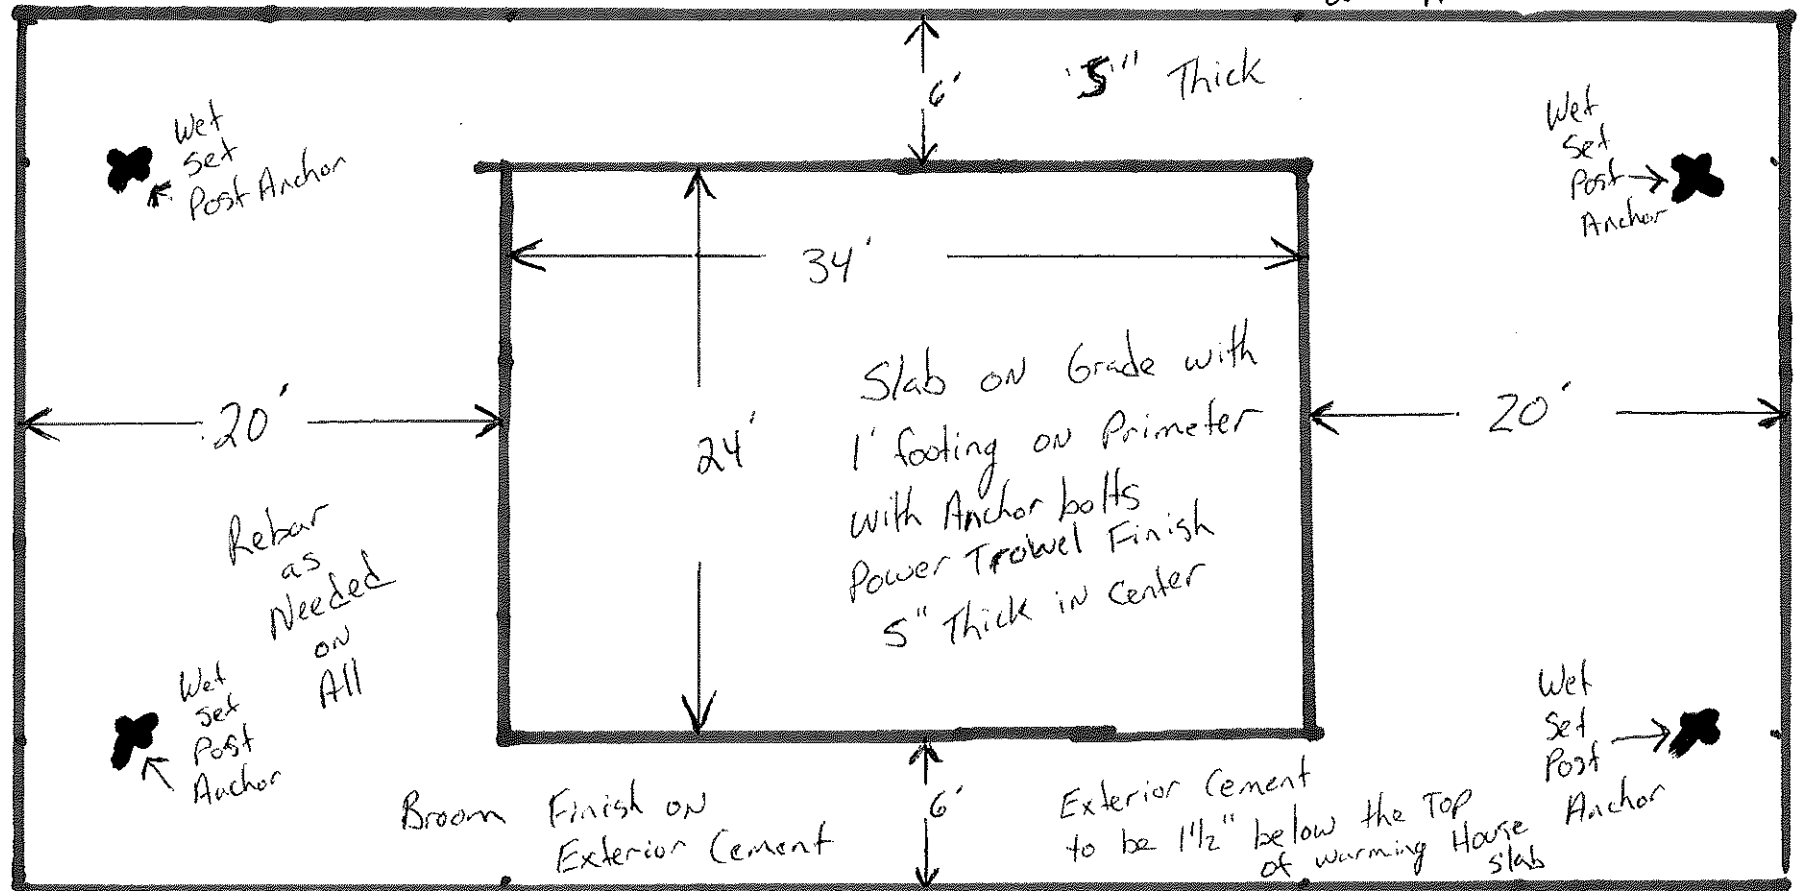 6'
'5'" Thick
Wet
Set
Post Anchor
Wet
Set
Post
Anchor
34'
Slab on Grade with
1' footing on Primeter
with Anchor bolts
Power Trowel Finish
5" Thick in center
20'
24'
20'
Rebar
as
Needed
on
All
Wet
Set
Post
Anchor
Wet
Set
Post
Anchor
Broom Finish on
Exterior Cement
6'
Exterior Cement
to be 1 1/2" below the Top
of warming House
slab